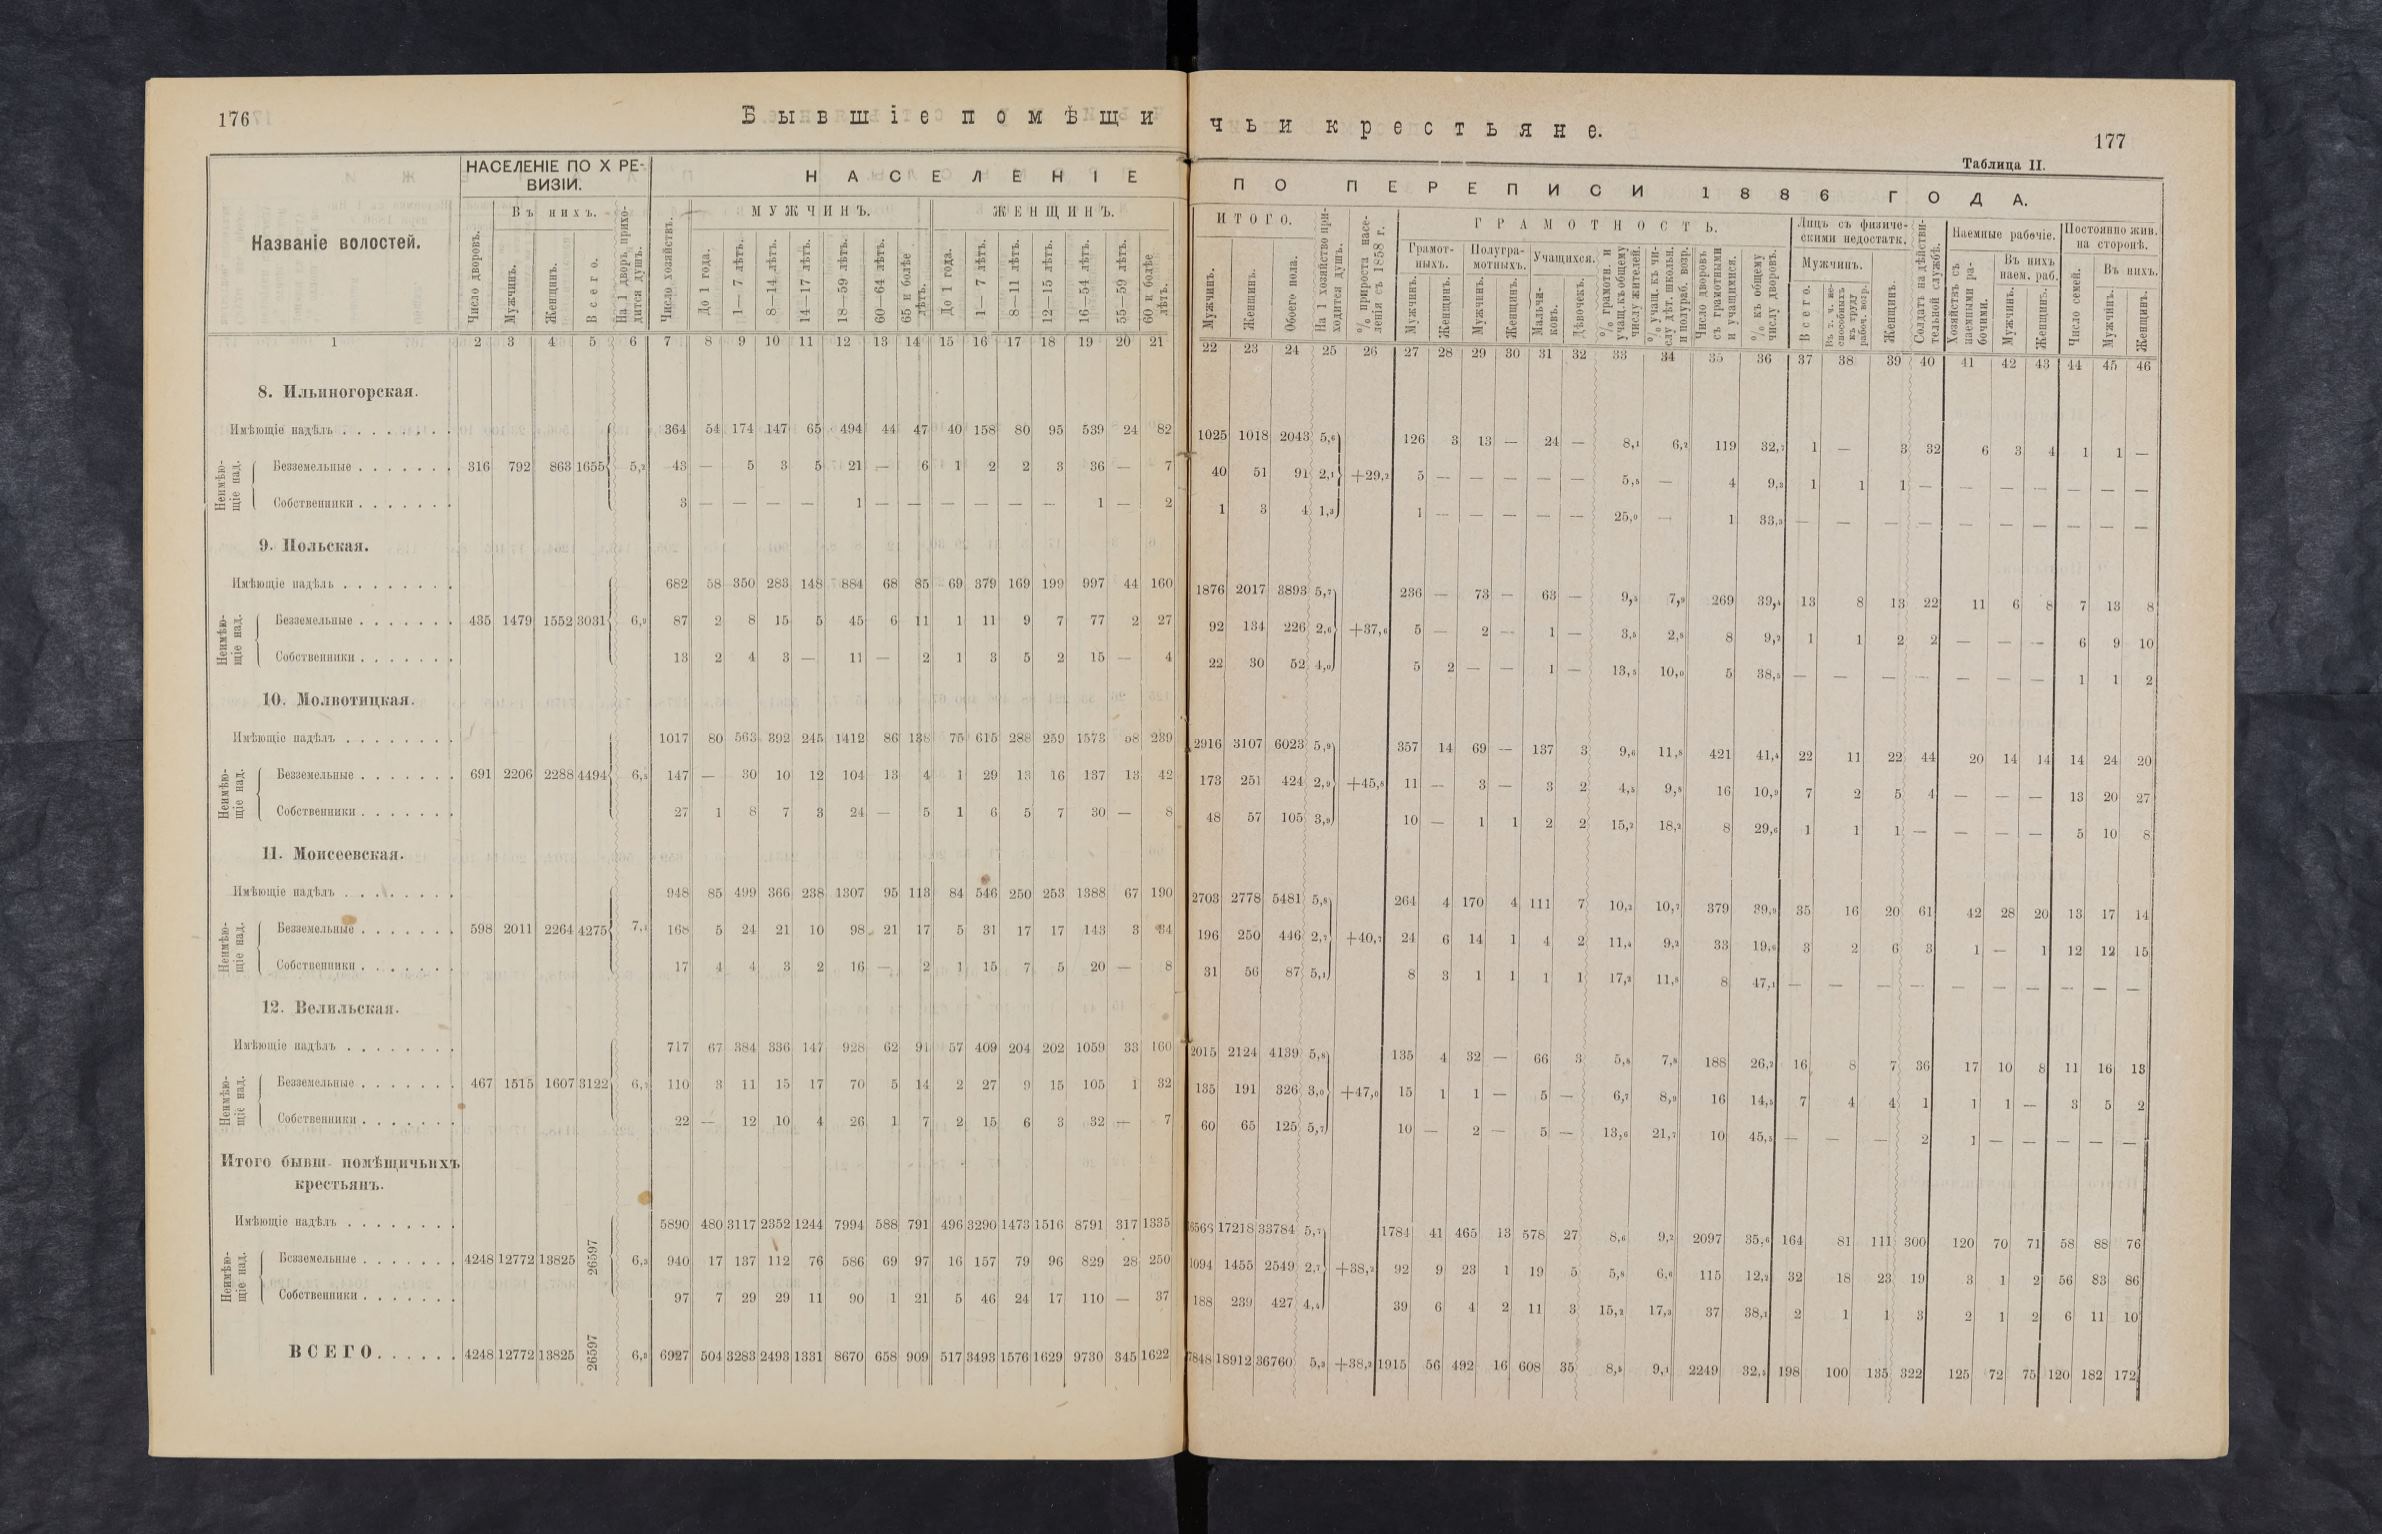 176
Бывшіе помѣщи
НАСЕЛЕНІЕ ПО X РЕ-
ВИЗІИ.
НАСЕЛЕНІЕ
Названіе волостей.
Число дворовъ.
Въ нихъ.
Мужчинъ.
Женщинъ.
Всего.
На 1 дворъ прихо-
дится душъ.
Число хозяйствъ.
МУЖЧИНЪ.
До 1 года.
1—7 лѣтъ.
8—14 лѣтъ.
14—17 лѣтъ.
18—59 лѣтъ.
60—64 лѣтъ.
65 и болѣе
лѣтъ.
ЖЕНЩИНЪ.
До 1 года.
1—7 лѣтъ.
8—11 лѣтъ.
12—15 лѣтъ.
16—54 лѣтъ.
55—59 лѣтъ.
60 и болѣе
лѣтъ.
1 2 3 4 5 6 7 8 9 10 11 12 13 14 15 16 17 18 19 20 21
8. Ильиногорская.
Имѣющіе надѣлъ . . . . . . . . 364 54 174 147 65 494 44 47 40 158 80 95 539 24 82
Неимѣю-
щіе над.
Безземельные . . . . . . . 316 792 863 1655 5,2 43 — 5 3 5 21 — 6 1 2 2 3 36 — 7
Собственники . . . . . . . 3 — — — — 1 — — — — — — 1 — 2
9. Польская.
Имѣющіе надѣлъ . . . . . . . . 682 58 350 283 148 884 68 85 69 379 169 199 997 44 160
Неимѣю-
щіе над.
Безземельные . . . . . . . 435 1479 1552 3031 6,9 87 2 8 15 5 45 6 11 1 11 9 7 77 2 27
Собственники . . . . . . . 13 2 4 3 — 11 — 2 1 3 5 2 15 — 4
10. Молвотицкая.
Имѣющіе надѣлъ . . . . . . . . 1017 80 563 392 245 1412 86 138 75 615 288 259 1573 58 239
Неимѣю-
щіе над.
Безземельные . . . . . . . 691 2206 2288 4494 6,5 147 — 30 10 12 104 13 4 1 29 13 16 137 13 42
Собственники . . . . . . . 27 1 8 7 3 24 — 5 1 6 5 7 30 — 8
11. Моисеевская.
Имѣющіе надѣлъ . . . . . . . . 948 85 499 366 238 1307 95 113 84 546 250 253 1388 67 190
Неимѣю-
щіе над.
Безземельные . . . . . . . 598 2011 2264 4275 7,1 168 5 24 21 10 98 21 17 5 31 17 17 143 3 34
Собственники . . . . . . . 17 4 4 3 2 16 — 2 1 15 7 5 20 — 8
12. Велильская.
Имѣющіе надѣлъ . . . . . . . . 717 67 384 336 147 928 62 91 57 409 204 202 1059 33 160
Неимѣю-
щіе над.
Безземельные . . . . . . . 467 1515 1607 3122 6,7 110 3 11 15 17 70 5 14 2 27 9 15 105 1 32
Собственники . . . . . . . 22 — 12 10 4 26 1 7 2 15 6 3 32 — 7
Итого бывш. помѣщичьихъ
крестьянъ.
Имѣющіе надѣлъ . . . . . . . . 5890 480 3117 2352 1244 7994 588 791 496 3290 1473 1516 8791 317 1335
Неимѣю-
щіе над.
Безземельные . . . . . . . 4248 12772 13825 26597 6,3 940 17 137 112 76 586 69 97 16 157 79 96 829 28 250
Собственники . . . . . . . 97 7 29 29 11 90 1 21 5 46 24 17 110 — 37
ВСЕГО . . . . . . 4248 12772 13825 26597 6,3 6927 504 3283 2493 1331 8670 658 909 517 3493 1576 1629 9730 345 1622
чьи крестьяне.
177
Таблица II.
ПО ПЕРЕПИСИ 1886 ГОДА.
ИТОГО.
Мужчинъ.
Женщинъ.
Обоего пола.
На 1 хозяйство при-
ходится душъ.
% прироста насе-
ленія съ 1858 г.
ГРАМОТНОСТЬ.
Грамот-
ныхъ.
Мужчинъ.
Женщинъ.
Полугра-
мотныхъ.
Мужчинъ.
Женщинъ.
Учащихся.
Мальчи-
ковъ.
Дѣвочекъ.
% грамотн. и
учащ. къ общему
числу жителей.
% учащ. къ чи-
слу дѣт. школьн.
и полураб. возр.
Число дворовъ
съ грамотными
и учащимися.
% къ общему
числу дворовъ.
Лицъ съ физиче-
скими недостатк.
Мужчинъ.
Всего.
Въ т. ч. не-
способныхъ
къ труду
рабоч. возр.
Женщинъ.
Солдатъ на дѣйстви-
тельной службѣ.
Наемные рабочіе.
Хозяйствъ съ
наемными ра-
бочими.
Въ нихъ
наем. раб.
Мужчинъ.
Женщинъ.
Постоянно жив.
на сторонѣ.
Число семей.
Въ нихъ.
Мужчинъ.
Женщинъ.
22 23 24 25 26 27 28 29 30 31 32 33 34 35 36 37 38 39 40 41 42 43 44 45 46
1025 1018 2043 5,6 126 3 13 — 24 — 8,1 6,2 119 32,7 1 — 3 32 6 3 4 1 1 —
40 51 91 2,1 +29,2 5 — — — — — 5,5 — 4 9,3 1 1 1 — — — — — — —
1 3 4 1,3 1 — — — — — 25,0 — 1 33,3 — — — — — — — — — —
1876 2017 3893 5,7 236 — 73 — 63 — 9,5 7,9 269 39,4 13 8 13 22 11 6 8 7 13 8
92 134 226 2,6 +37,6 5 — 2 — 1 — 3,5 2,8 8 9,2 1 1 2 2 — — — 6 9 10
22 30 52 4,0 5 2 — — 1 — 13,5 10,0 5 38,5 — — — — — — — 1 1 2
2916 3107 6023 5,9 357 14 69 — 137 3 9,6 11,8 421 41,4 22 11 22 44 20 14 14 14 24 20
173 251 424 2,9 +45,8 11 — 3 — 3 2 4,5 9,8 16 10,9 7 2 5 4 — — — 13 20 27
48 57 105 3,9 10 — 1 1 2 2 15,2 18,2 8 29,6 1 1 1 — — — — 5 10 8
2703 2778 5481 5,8 264 4 170 4 111 7 10,2 10,7 379 39,9 35 16 20 61 42 28 20 13 17 14
196 250 446 2,7 +40,7 24 6 14 1 4 2 11,4 9,2 33 19,6 3 2 6 3 1 — 1 12 12 15
31 56 87 5,1 8 3 1 1 1 1 17,2 11,8 8 47,1 — — — — — — — — — —
2015 2124 4139 5,8 135 4 32 — 66 3 5,8 7,8 188 26,2 16 8 7 36 17 10 8 11 16 13
135 191 326 3,0 +47,0 15 1 1 — 5 — 6,7 8,9 16 14,5 7 4 4 1 1 1 — 3 5 2
60 65 125 5,7 10 — 2 — 5 — 13,6 21,7 10 45,5 — — — 2 1 — — — — —
16566 17218 33784 5,7 1784 41 465 13 578 27 8,6 9,2 2097 35,6 164 81 111 300 120 70 71 58 88 76
1094 1455 2549 2,7 +38,2 92 9 23 1 19 5 5,8 6,6 115 12,2 32 18 23 19 3 1 2 56 83 86
188 239 427 4,4 39 6 4 2 11 3 15,2 17,3 37 38,1 2 1 1 3 2 1 2 6 11 10
7848 18912 36760 5,3 +38,2 1915 56 492 16 608 35 8,5 9,1 2249 32,5 198 100 135 322 125 72 75 120 182 172